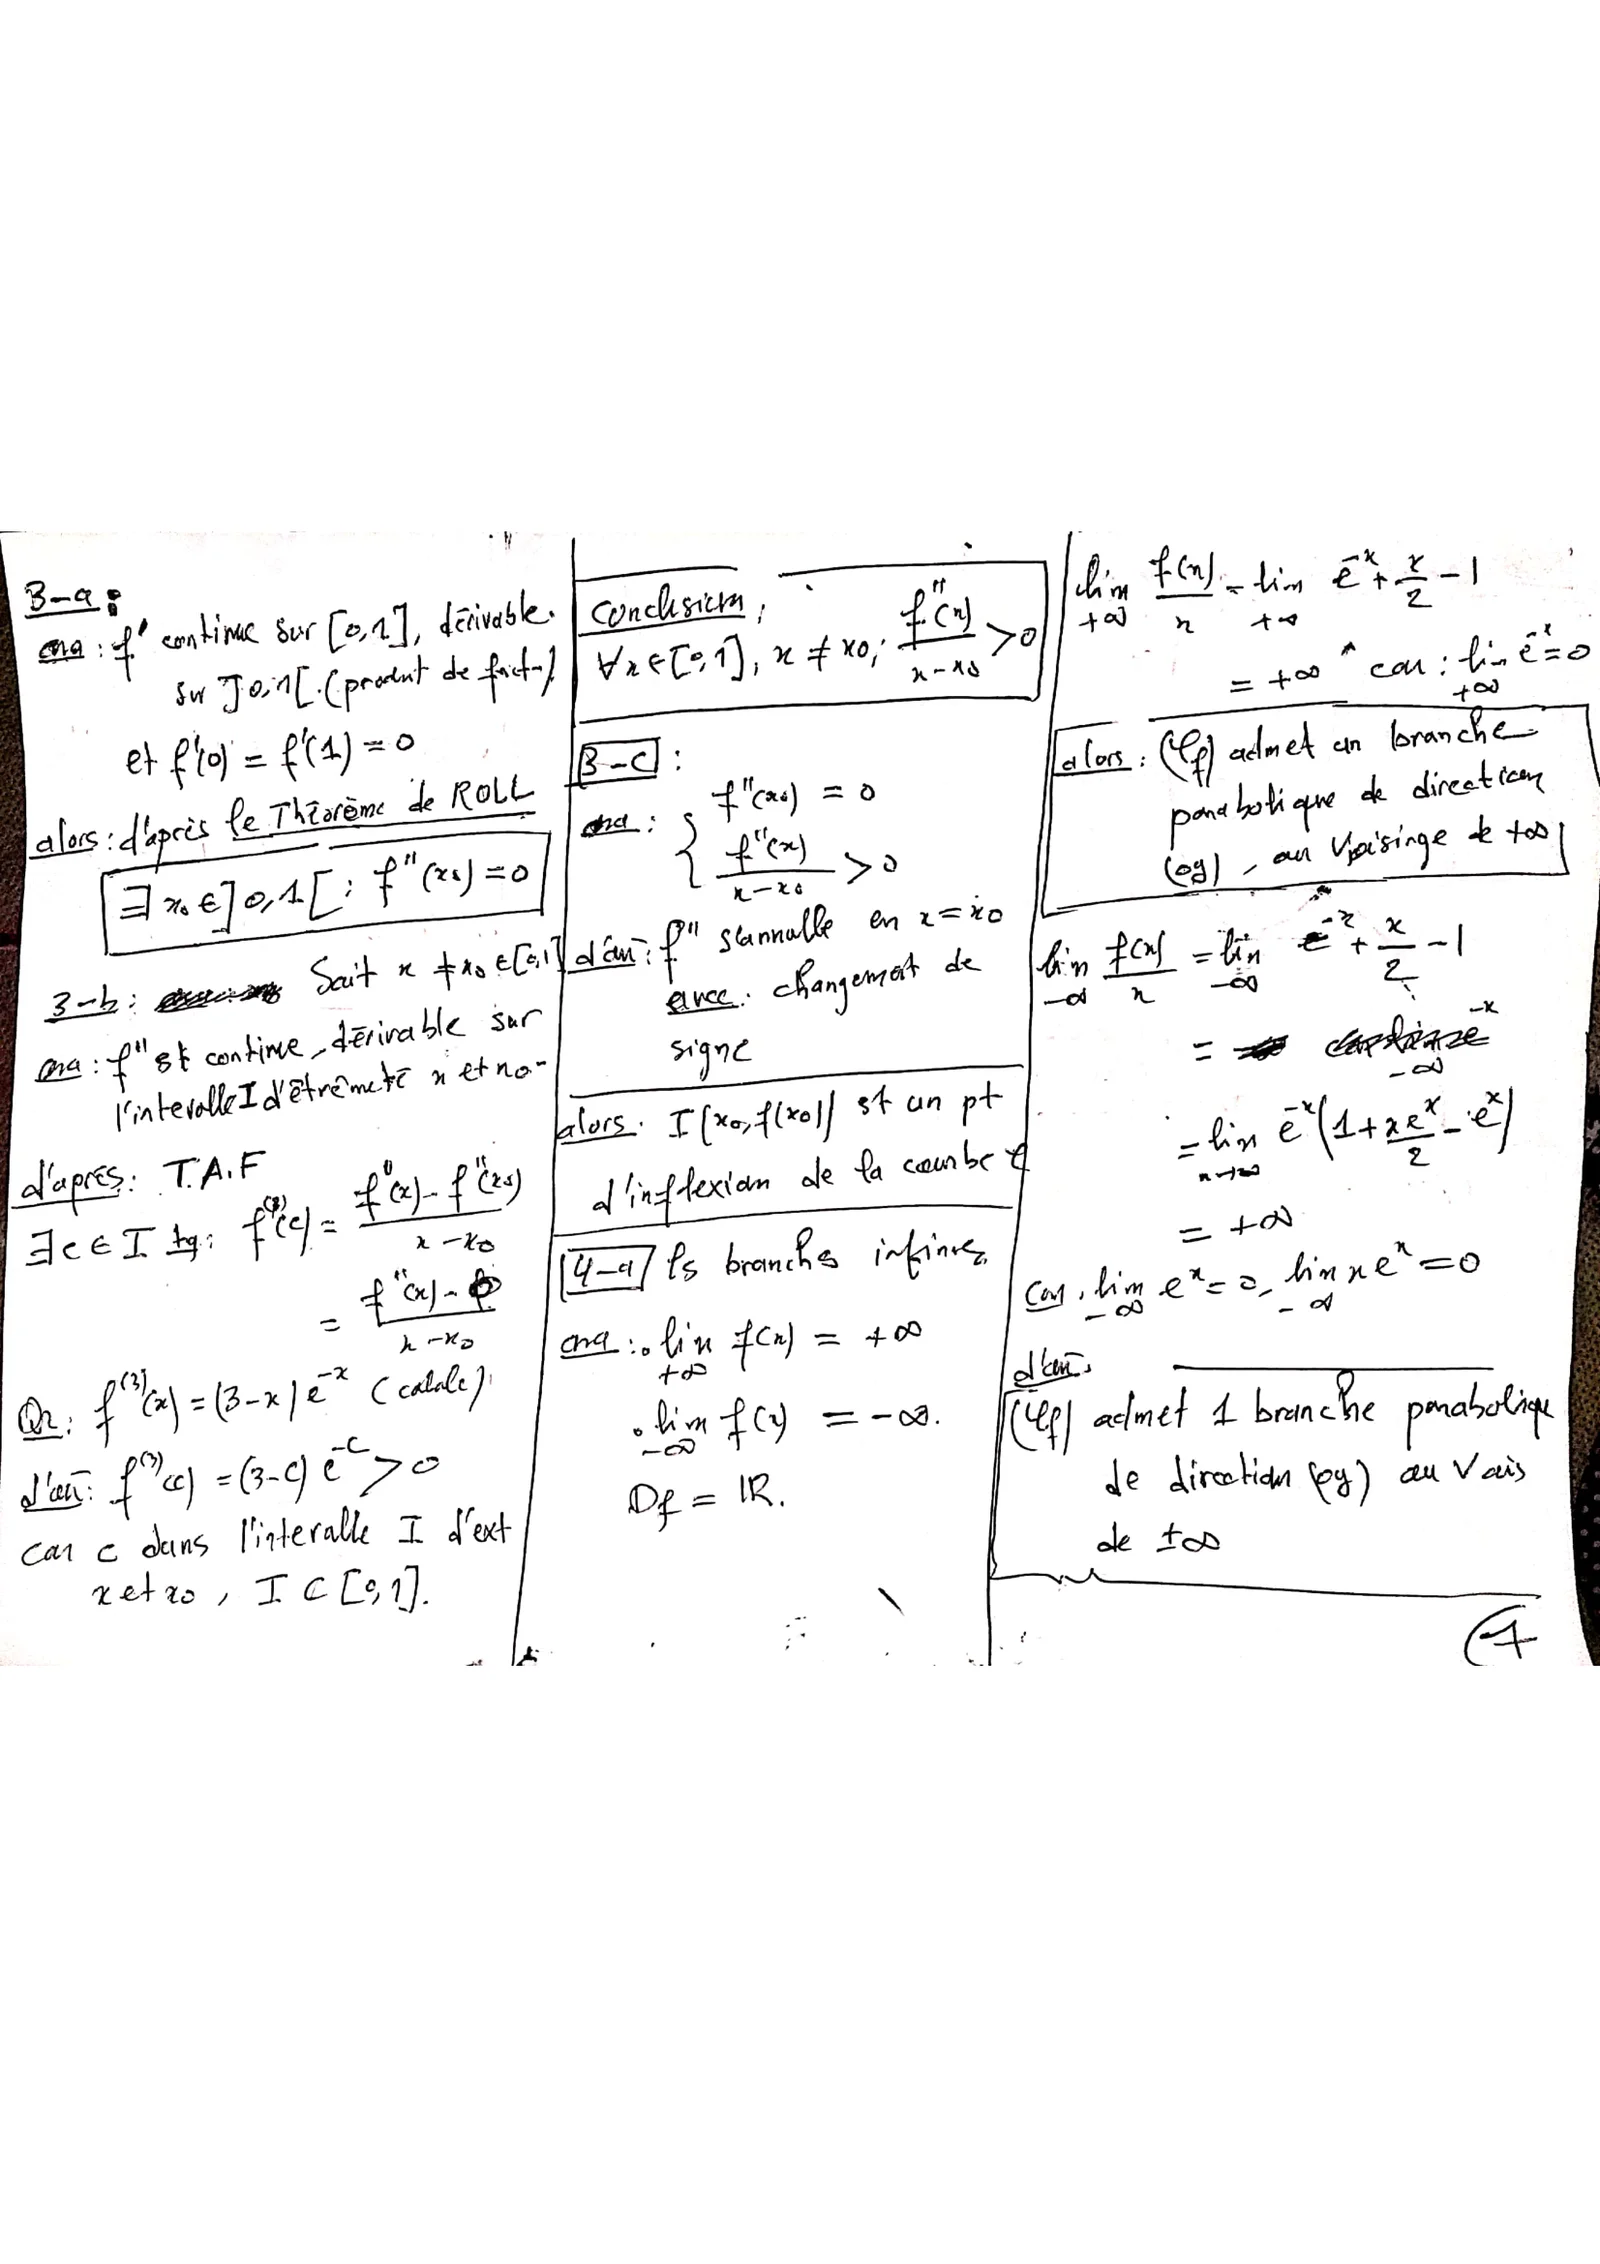 3-a :
ona : f' continue sur [0,1], dérivable
sur ]0,1[. (produit de fict-)
et f'(0) = f'(1) = 0
alors : d'après le Théorème de ROLL
∃ x₀ ∈ ]0,1[ ; f''(x₀) = 0
3-b : Soit x ≠ x₀ ∈ [0,1]
ona : f'' est continue, dérivable sur
l'intevalle I d'êtrêmeté x et x₀-
d'après : T.A.F
∃ c ∈ I tq : f⁽³⁾(c) = (f''(x) - f''(x₀)) / (x - x₀)
= (f''(x) - 0) / (x - x₀)
Or : f⁽³⁾(x) = (3-x) e⁻ˣ (calale)
d'où : f⁽³⁾(c) = (3-c) e⁻ᶜ > 0
car c dans l'interalle I d'ext
x et x₀, I ⊂ [0,1].
Conclusion,
∀x ∈ [0,1], x ≠ x₀ ; f''(x) / (x - x₀) > 0
3-c :
ona : { f''(x₀) = 0
f''(x) / (x - x₀) > 0
d'où : f'' s'annulle en x = x₀
avec : changement de
signe
alors. I(x₀, f(x₀)) st un pt
d'inflexion de la courbe ℓ
4-a ls branches infinies
ona : • lim f(x) = +∞
+∞
• lim f(x) = -∞.
-∞
Df = IR.
lim f(x)/x = lim e⁻ˣ + x/2 - 1
+∞ +∞
= +∞ car : lim e⁻ˣ = 0
+∞
alors : (ℓf) admet un branche
parabolique de direction
(oy), au voisinge de +∞
lim f(x)/x = lim e⁻ˣ + x/2 - 1
-∞ -∞
=
= lim e⁻ˣ (1 + xeˣ/2 - eˣ)
x→-∞
= +∞
Car, lim eˣ = 0, lim xeˣ = 0
-∞ -∞
d'où,
(ℓf) admet 1 branche parabolique
de direction (oy) au Vois
de ±∞
4